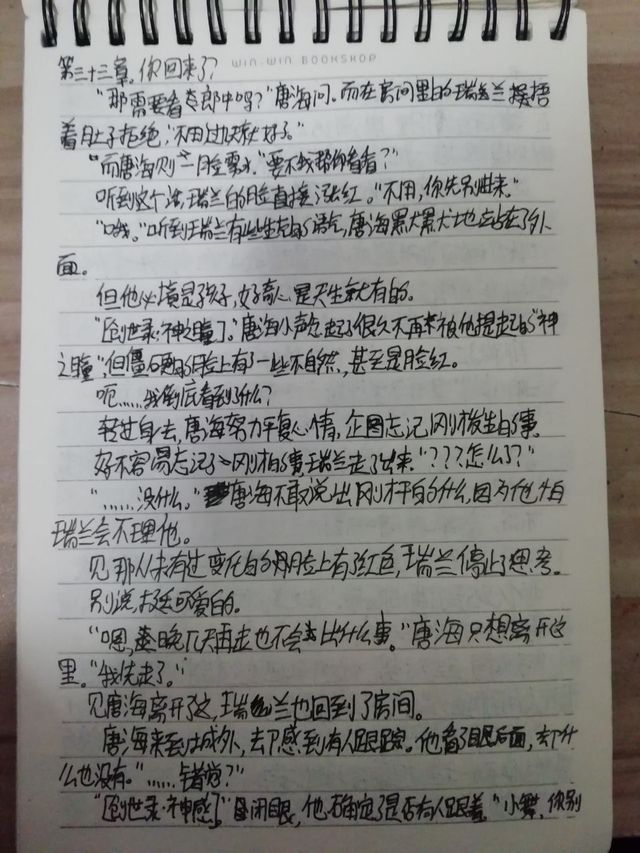 第三十三章,你回来了?
WIN-WIN BOOKSHOP
"那需要看郎中吗?"唐海问。而在房间里的瑞兰捂
着肚子拒绝,"不用过几天就好了。"
"而唐海则一脸"要不我帮你看看?"
听到这个话,瑞兰的脸直接涨红。"不用,你先别进来。"
"哦。"听到瑞兰有些生气的语气,唐海默默地站在了外
面。
但他必竟是孩子,好奇心是天生就有的。
"创世录·神之瞳了。"唐海小声念起了很久不再被他提起的"神
之瞳",但僵硬的脸上有了一些不自然,甚至是脸红。
呃……我到底看到了什么?
转过身去,唐海努力平复心情,企图忘记刚才发生的事
好不容易忘记了刚才的事,瑞兰走了出来"???怎么了?"
"……没什么。"唐海不敢说出刚才干的什么,因为他怕
瑞兰会不理他。
见那从未有过变化的脸上有了红色,瑞兰停止了思考。
别说,挺可爱的。
"嗯,晚几天再走也不会出什么事。"唐海只想离开这
里。"我先走了。"
见唐海离开了这,瑞兰也回到了房间。
唐海来到城外,却感到有人跟踪。他看了眼后面,却什
么也没有。"……错觉?"
"创世录·神感了"闭眼,他确定了是否有人跟着。"小舞,你别